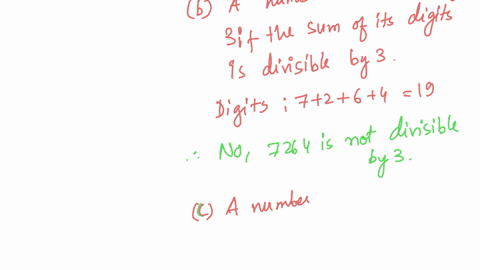 (b) A
3if the sum of its digits
is divisible by 3.
Digits ; 7+2+6+4 = 19
∴ No, 7264 is not divisible
by 3.
(c) A number